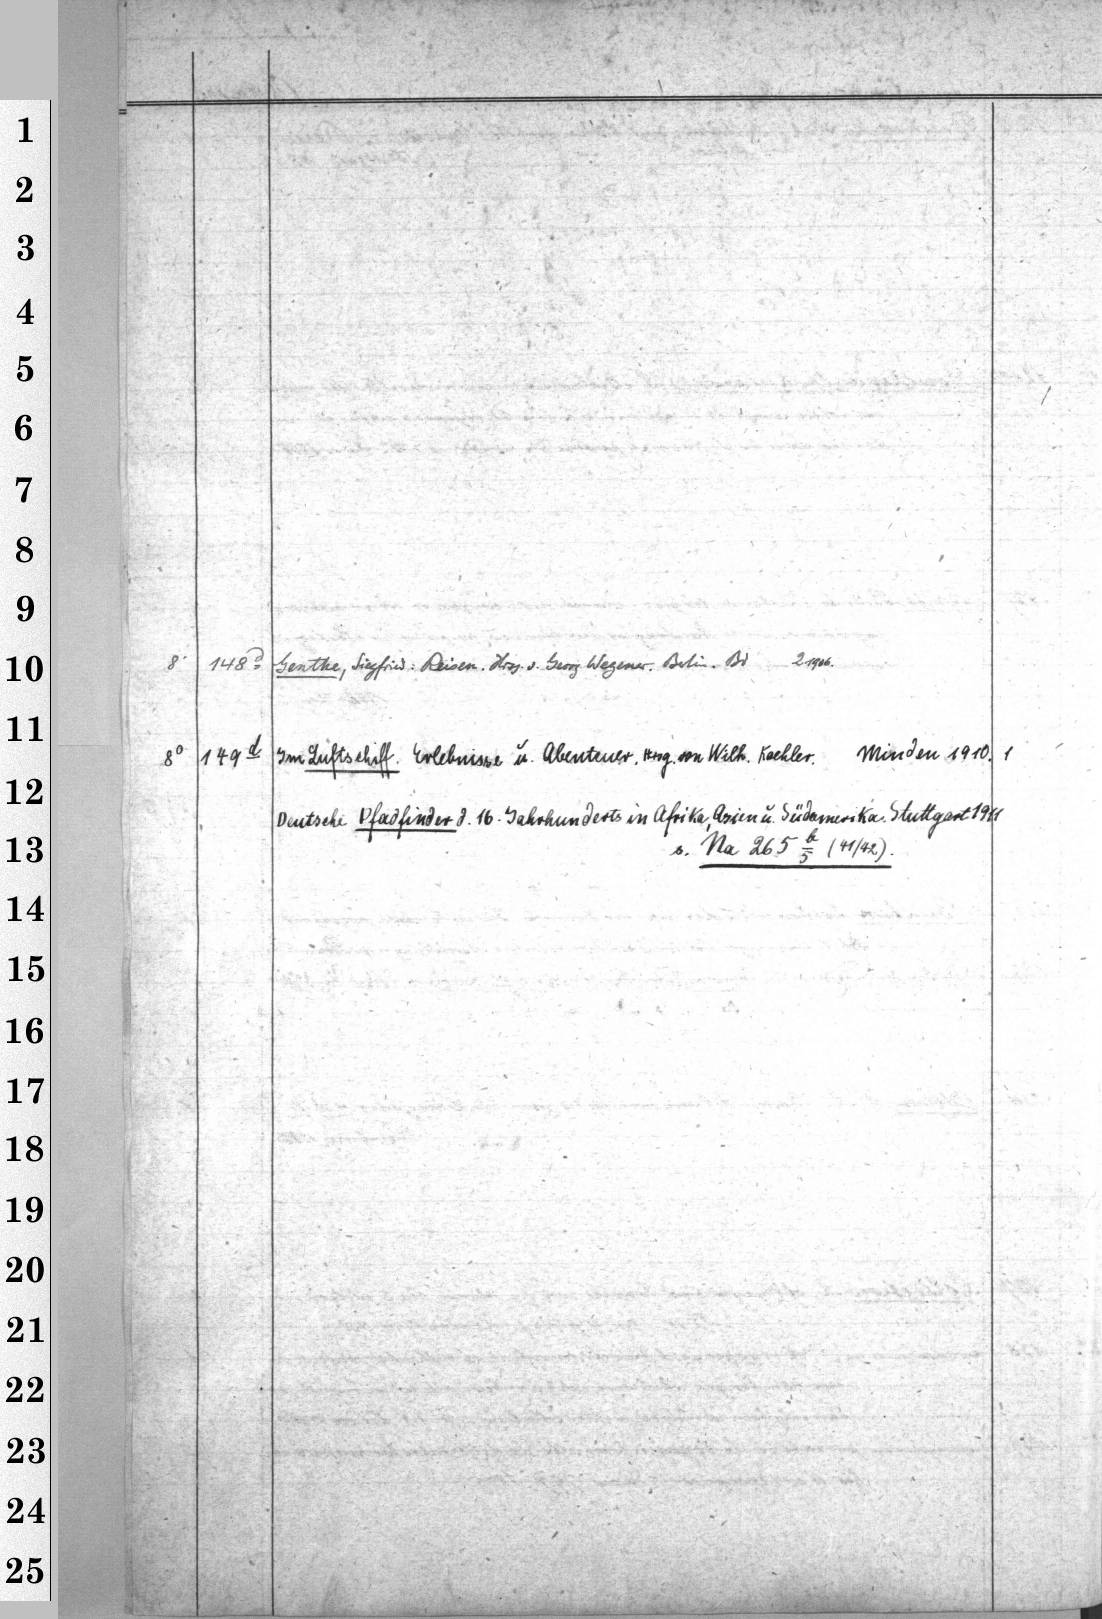 1
2
3
4
5
6
7
8
9
8° 148 d Genthe, Siegfried: Reisen. Hrsg. v. Georg Wegener. Berlin. Bd 2 1906.
10
11
8° 149 d Im Luftschiff. Erlebnisse u. Abenteuer. Hrsg. von Wilh. Koehler. Minden 1910. 1
12
Deutsche Pfadfinder d. 16. Jahrhunderts in Afrika, Asien u. Südamerika. Stuttgart 1911
13
s. Na 265 b/5 (41/42).
14
15
16
17
18
19
20
21
22
23
24
25